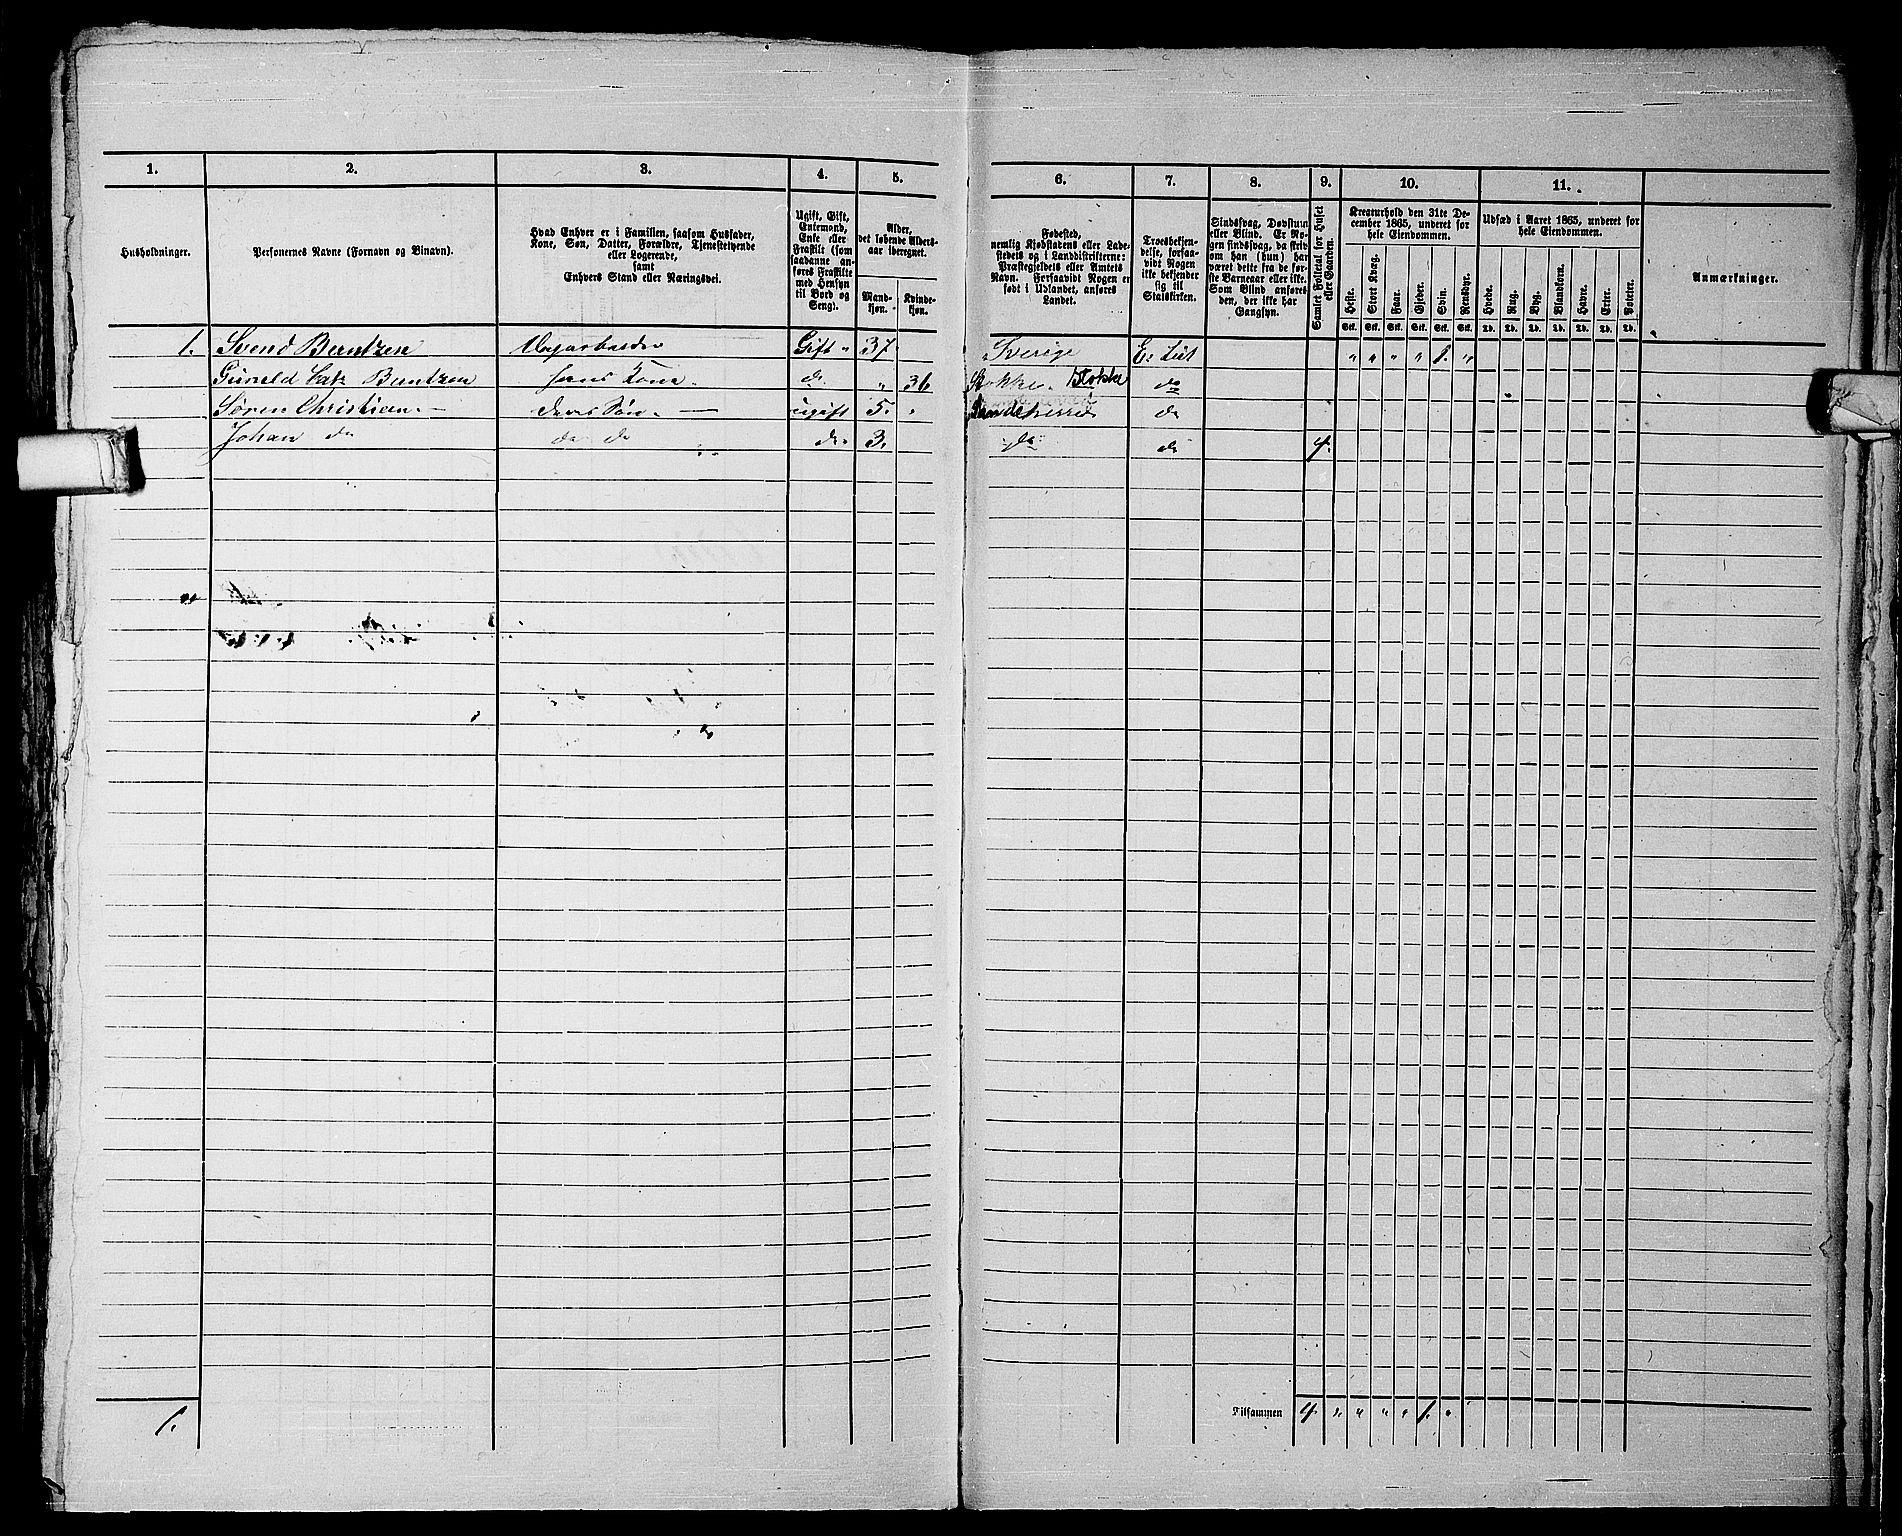 1. 2. 3. 4. 5. 6. 7. 8. 9. 10. 11.
Husholdninger.
Personernes Navne (Fornavn og Binavn).
Hvad Enhver er i Familien, saasom Husfader,
Kone, Søn, Datter, Forældre, Tjenestetyende
eller Logerende,
samt
Enhvers Stand eller Næringsvei.
Ugift, Gift,
Enkemand,
Enke eller
Fraskilt (som
saadanne an-
føres Fraskilte
med Hensyn
til Bord og
Seng).
Alder,
det løbende Alders-
aar iberegnet.
Mand-
kjøn.
Kvinde-
kjøn.
Fødested,
nemlig Kjøbstadens eller Lade-
stedets og i Landdistrikterne:
Præstegjeldets eller Amtets
Navn. Forsaavidt Nogen er
født i Udlandet, anføres
Landet.
Troesbekjen-
delse, forsaa-
vidt Nogen
ikke bekjender
sig til
Statskirken.
Sindssvag, Døvstum
eller Blind. Er No-
gen sindssvag, da skriv
om han (hun) har
været dette fra de før-
ste Barneaar eller ikke.
Som Blind anføres
den, der ikke har
Gangsyn.
Samlet Folketal for Huset
eller Gaarden.
Kreaturhold den 31te De-
cember 1865, underet for
hele Eiendommen.
Heste. Stort Kvæg. Faar. Gjeder. Svin. Rensdyr.
Stk. Stk. Stk. Stk. Stk. Stk.
Udsæd i Aaret 1865, underet for
hele Eiendommen.
Hvede. Rug. Byg. Blandkorn. Havre. Erter. Poteter.
Td. Td. Td. Td. Td. Td. Td.
Anmærkninger.
1. Svend Berntzen Dagarbeider Gift " 37 Sverige Ev Lut " " " " 1. "
Berntzen hans Kone do " 36 Stokke Stokke do
Søren Christian — deres Søn — ugift 5. " Sandeherred do
Johan do do do do 3. do do 4.
1.
Tilsammen 4 " " " " 1. "